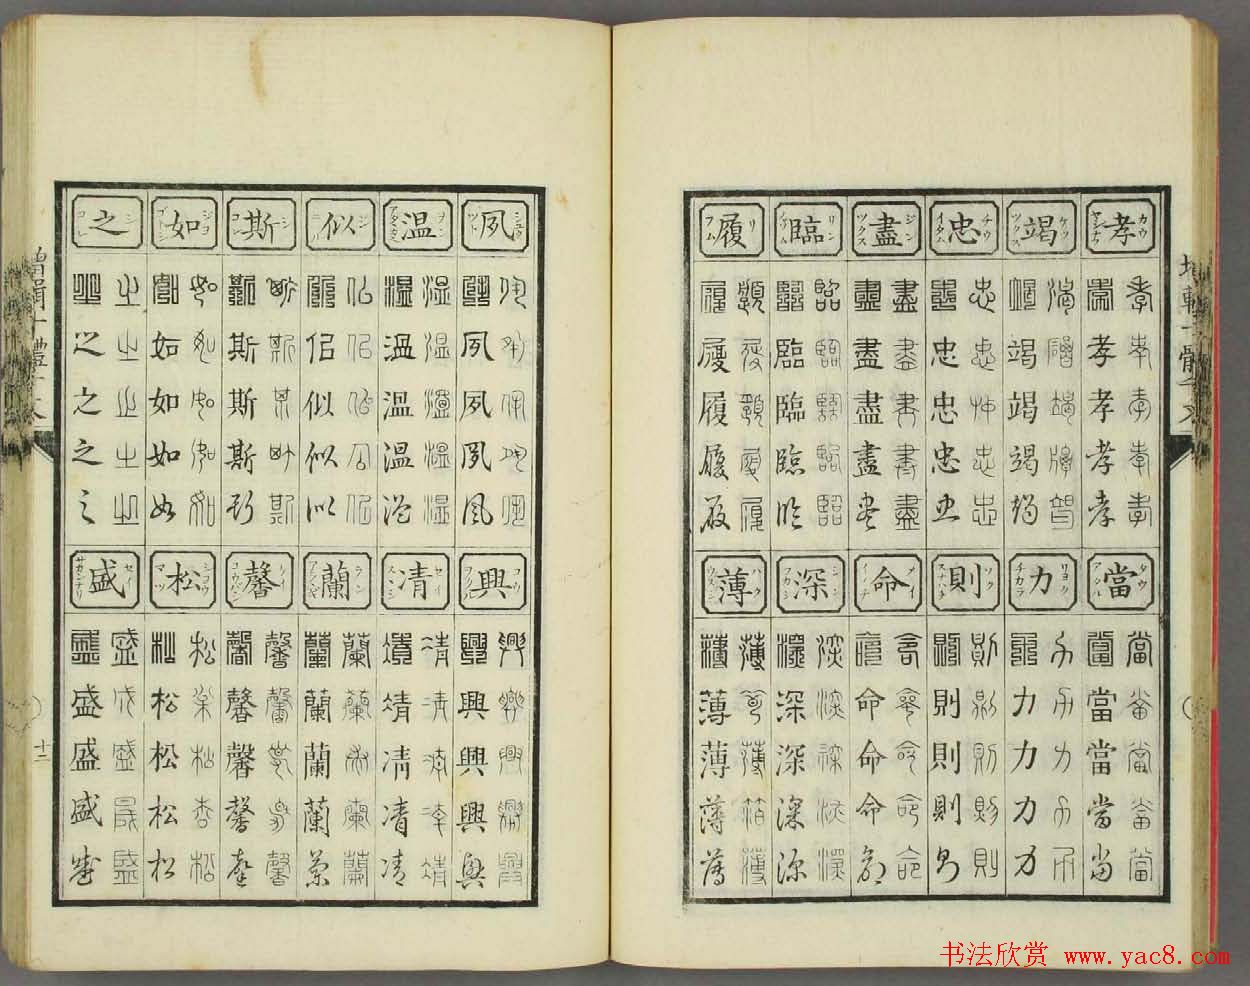 孝 カウ
孝孝孝孝孝
孝孝孝孝孝
當 タウ アタル
當當當當當
當當當當當
竭 ケツ ツクス
竭竭竭竭竭
竭竭竭竭竭
力 リヨク チカラ
力力力力力
力力力力力
忠 チウ
忠忠忠忠忠
忠忠忠忠忠
則 ソク スナハチ
則則則則則
則則則則則
盡 ジン ツクス
盡盡盡盡盡
盡盡盡盡盡
命 メイ
命命命命命
命命命命命
臨 リン
臨臨臨臨臨
臨臨臨臨臨
深 シン フカシ
深深深深深
深深深深深
履 リ フム
履履履履履
履履履履履
薄 ハク ウスシ
薄薄薄薄薄
薄薄薄薄薄
夙
夙夙夙夙夙
夙夙夙夙夙
興
興興興興興
興興興興興
温
温温温温温
温温温温温
凊 セイ
凊凊凊凊凊
凊凊凊凊凊
似 ジ ニタリ
似似似似似
似似似似似
蘭 ラン
蘭蘭蘭蘭蘭
蘭蘭蘭蘭蘭
斯 シ
斯斯斯斯斯
斯斯斯斯斯
馨
馨馨馨馨馨
馨馨馨馨馨
如 ジヨ ゴトシ
如如如如如
如如如如如
松 シヨウ マツ
松松松松松
松松松松松
之 シ コレ
之之之之之
之之之之之
盛 セイ サカンナリ
盛盛盛盛盛
盛盛盛盛盛
十二
书法欣赏 www.yac8.com